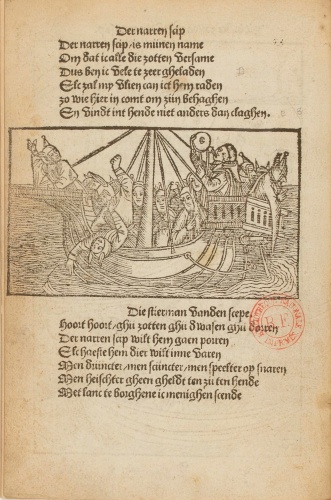 Der narren scip
Der narren scip / is minen name
Om dat ic alle die zotten versame
Dus ben ic vele te zeer gheladen
Elc zal my vlien can ict hem raden
zo wie hier in comt om zijn behaghen
En vindt int hende niet anders dan claghen.
Die stierman vanden scepe.
Hoort hoort / ghij zotten ghij dwasen ghij dooren
Der narren scap wilt hem gaen porren
Elc haeste hem dier wilt inne varen
Men drincter / men scincter / men speelter op snaren
Men heischter gheen gheldt ten zij ten hende
Met lanc te borghene ic menighen scende